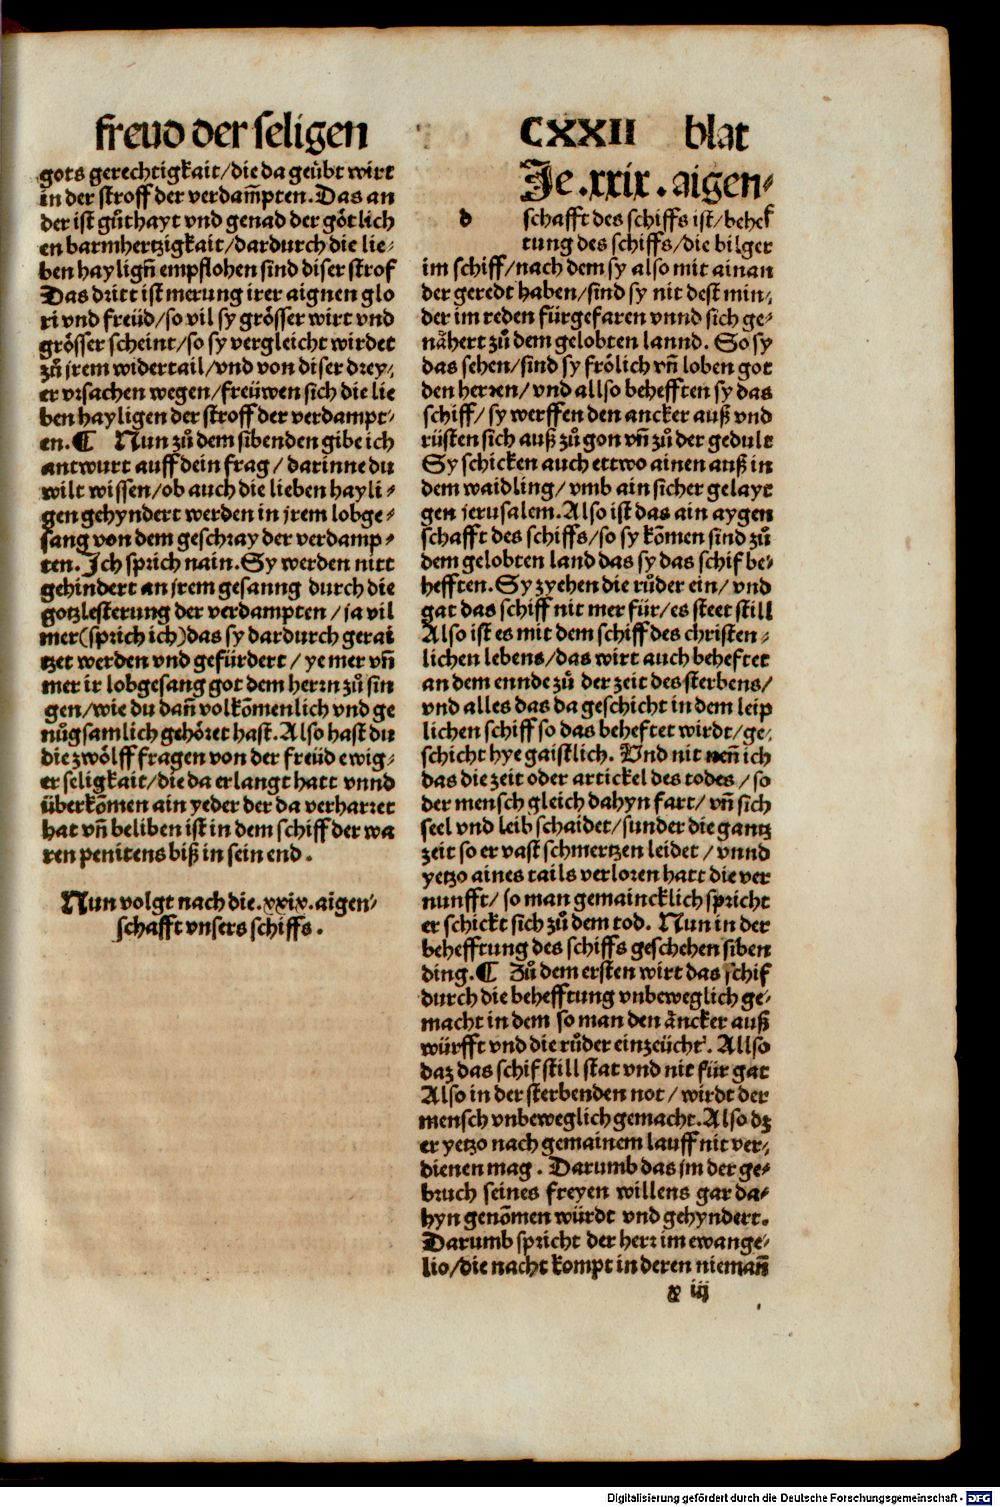 freud der seligen
CXXII blat
gots gerechtigkait/die da geübt wirt
in der stroff der verdam̃pten. Das an
der ist gůthayt vnd genad der götlich
en barmhertzigkait/dardurch die lie-
ben hayligñ empflohen sind diser strof
Das dritt ist merung irer aignen glo
ri vnd freüd/so vil sy grösser wirt vnd
grösser scheint/so sy vergleicht wirdet
zů jrem widertail/vnd von diser drey-
er vrsachen wegen/freüwen sich die lie
ben hayligen der stroff der verdampt-
en. ¶ Nun zů dem sibenden gibe ich
antwurt auff dein frag/ darinne du
wilt wissen/ob auch die lieben hayli-
gen gehyndert werden in jrem lobge-
sang von dem geschray der verdamp-
ten. Ich sprich nain. Sy werden nitt
gehindert an jrem gesanng durch die
gotzlesterung der verdampten/ja vil
mer(sprich ich)das sy dardurch gerai
tzet werden vnd gefürdert/ye mer vñ
mer ir lobgesang got dem herrn zů sin
gen/wie du dañ volkõmenlich vnd ge
nůgsamlich gehöret hast. Also hast du
die zwölff fragen von der freüd ewig-
er seligkait/die da erlangt hatt vnnd
überkõmen ain yeder der da verharret
hat vñ beliben ist in dem schiff der wa
ren penitens biß in sein end.
Nun volgt nach die .xxix. aigen-
schafft vnsers schiffs.
d Ie .xxix. aigen-
schafft des schiffs ist/behef
tung des schiffs/die bilger
im schiff/nach dem sy also mit ainan
der geredt haben/sind sy nit dest min-
der im reden fürgefaren vnnd sich ge-
nähert zů dem gelobten lannd. So sy
das sehen/sind sy frölich vñ loben got
den herren/vnd allso behefften sy das
schiff/ sy werffen den ancker auß vnd
rüsten sich auß zů gon vñ zů der gedult
Sy schicken auch ettwo ainen auß in
dem waidling/vmb ain sicher gelayt
gen jerusalem. Also ist das ain aygen
schafft des schiffs/so sy kõmen sind zů
dem gelobten land das sy das schif be-
hefften. Sy zyehen die růder ein/vnd
gat das schiff nit mer für/es steet still
Also ist es mit dem schiff des christen-
lichen lebens/das wirt auch beheftet
an dem ennde zů der zeit des sterbens/
vnd alles das da geschicht in dem leip
lichen schiff so das beheftet wirdt/ge-
schicht hye gaistlich. Vnd nit neñ ich
das die zeit oder artickel des todes/so
der mensch gleich dahyn fart/vñ sich
seel vnd leib schaidet/sunder die gantz
zeit so er vast schmertzen leidet/vnnd
yetzo aines tails verloren hatt die ver
nunfft/ so man gemaincklich spricht
er schickt sich zů dem tod. Nun in der
behefftung des schiffs geschehen siben
ding. ¶ Zů dem ersten wirt das schif
durch die behefftung vnbeweglich ge-
macht in dem so man den äncker auß
würfft vnd die růder einzeücht. Allso
daz das schif still stat vnd nit für gat
Also in der sterbenden not/wirdt der
mensch vnbeweglich gemacht. Also dz
er yetzo nach gemainem lauff nit ver-
dienen mag. Darumb das jm der ge-
bruch seines freyen willens gar da-
hyn genõmen würdt vnd gehyndert.
Darumb spricht der herr im ewange-
lio/die nacht kompt in deren niemañ
x iij
Digitalisierung gefördert durch die Deutsche Forschungsgemeinschaft - DFG